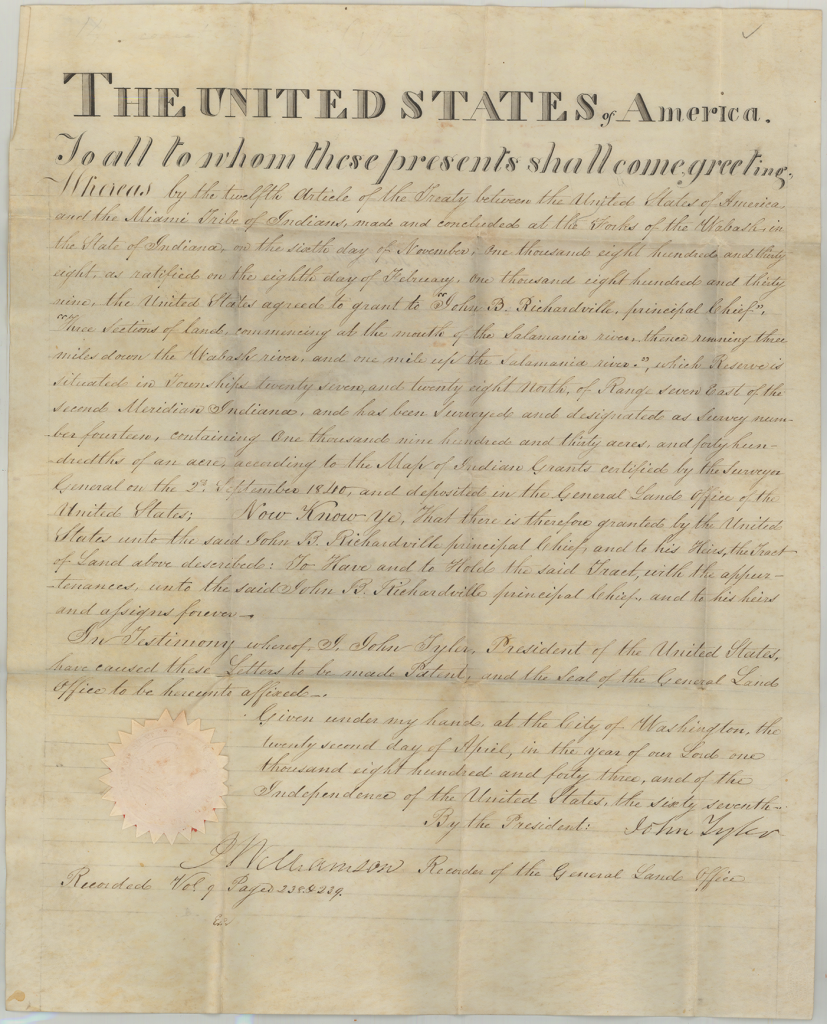 THE UNITED STATES of America.
To all to whom these presents shall come, greeting,
Whereas by the twelfth Article of the Treaty between the United States of America
and the Miami Tribe of Indians, made and concluded at the Forks of the Wabash, in
the State of Indiana, on the sixth day of November, one thousand eight hundred and thirty
eight, as ratified on the eighth day of February, one thousand eight hundred and thirty
nine, the United States agreed to grant to "John B. Richardville, principal Chief",
"Three Sections of land, commencing at the mouth of the Salamania river, thence running three
miles down the Wabash river, and one mile up the Salamania river.", which Reserve is
situated in Townships twenty seven, and twenty eight North, of Range seven East of the
second Meridian Indiana, and has been surveyed and designated as Survey num-
ber fourteen, containing One thousand nine hundred and thirty acres, and forty hun-
-dredths of an acre, according to the Map of Indian Grants certified by the Surveyor
General on the 2d. September 1840, and deposited in the General Land Office of the
United States; Now Know Ye, That there is therefore granted by the United
States unto the said John B. Richardville principal Chief, and to his Heirs, the Tract
of Land above described: To Have and to Hold the said Tract, with the appur-
-tenances, unto the said John B. Richardville principal Chief, and to his heirs
and assigns forever—.
In Testimony whereof I, John Tyler, President of the United States,
have caused these Letters to be made Patent, and the Seal of the General Land
Office to be hereunto affixed—.
Given under my hand, at the City of Washington, the
twenty second day of April, in the year of our Lord one
thousand eight hundred and forty three, and of the
Independence of the United States, the sixty seventh—.
By the President: John Tyler
J Williamson Recorder of the General Land Office
Recorded Vol 9 Pages 238 & 239.